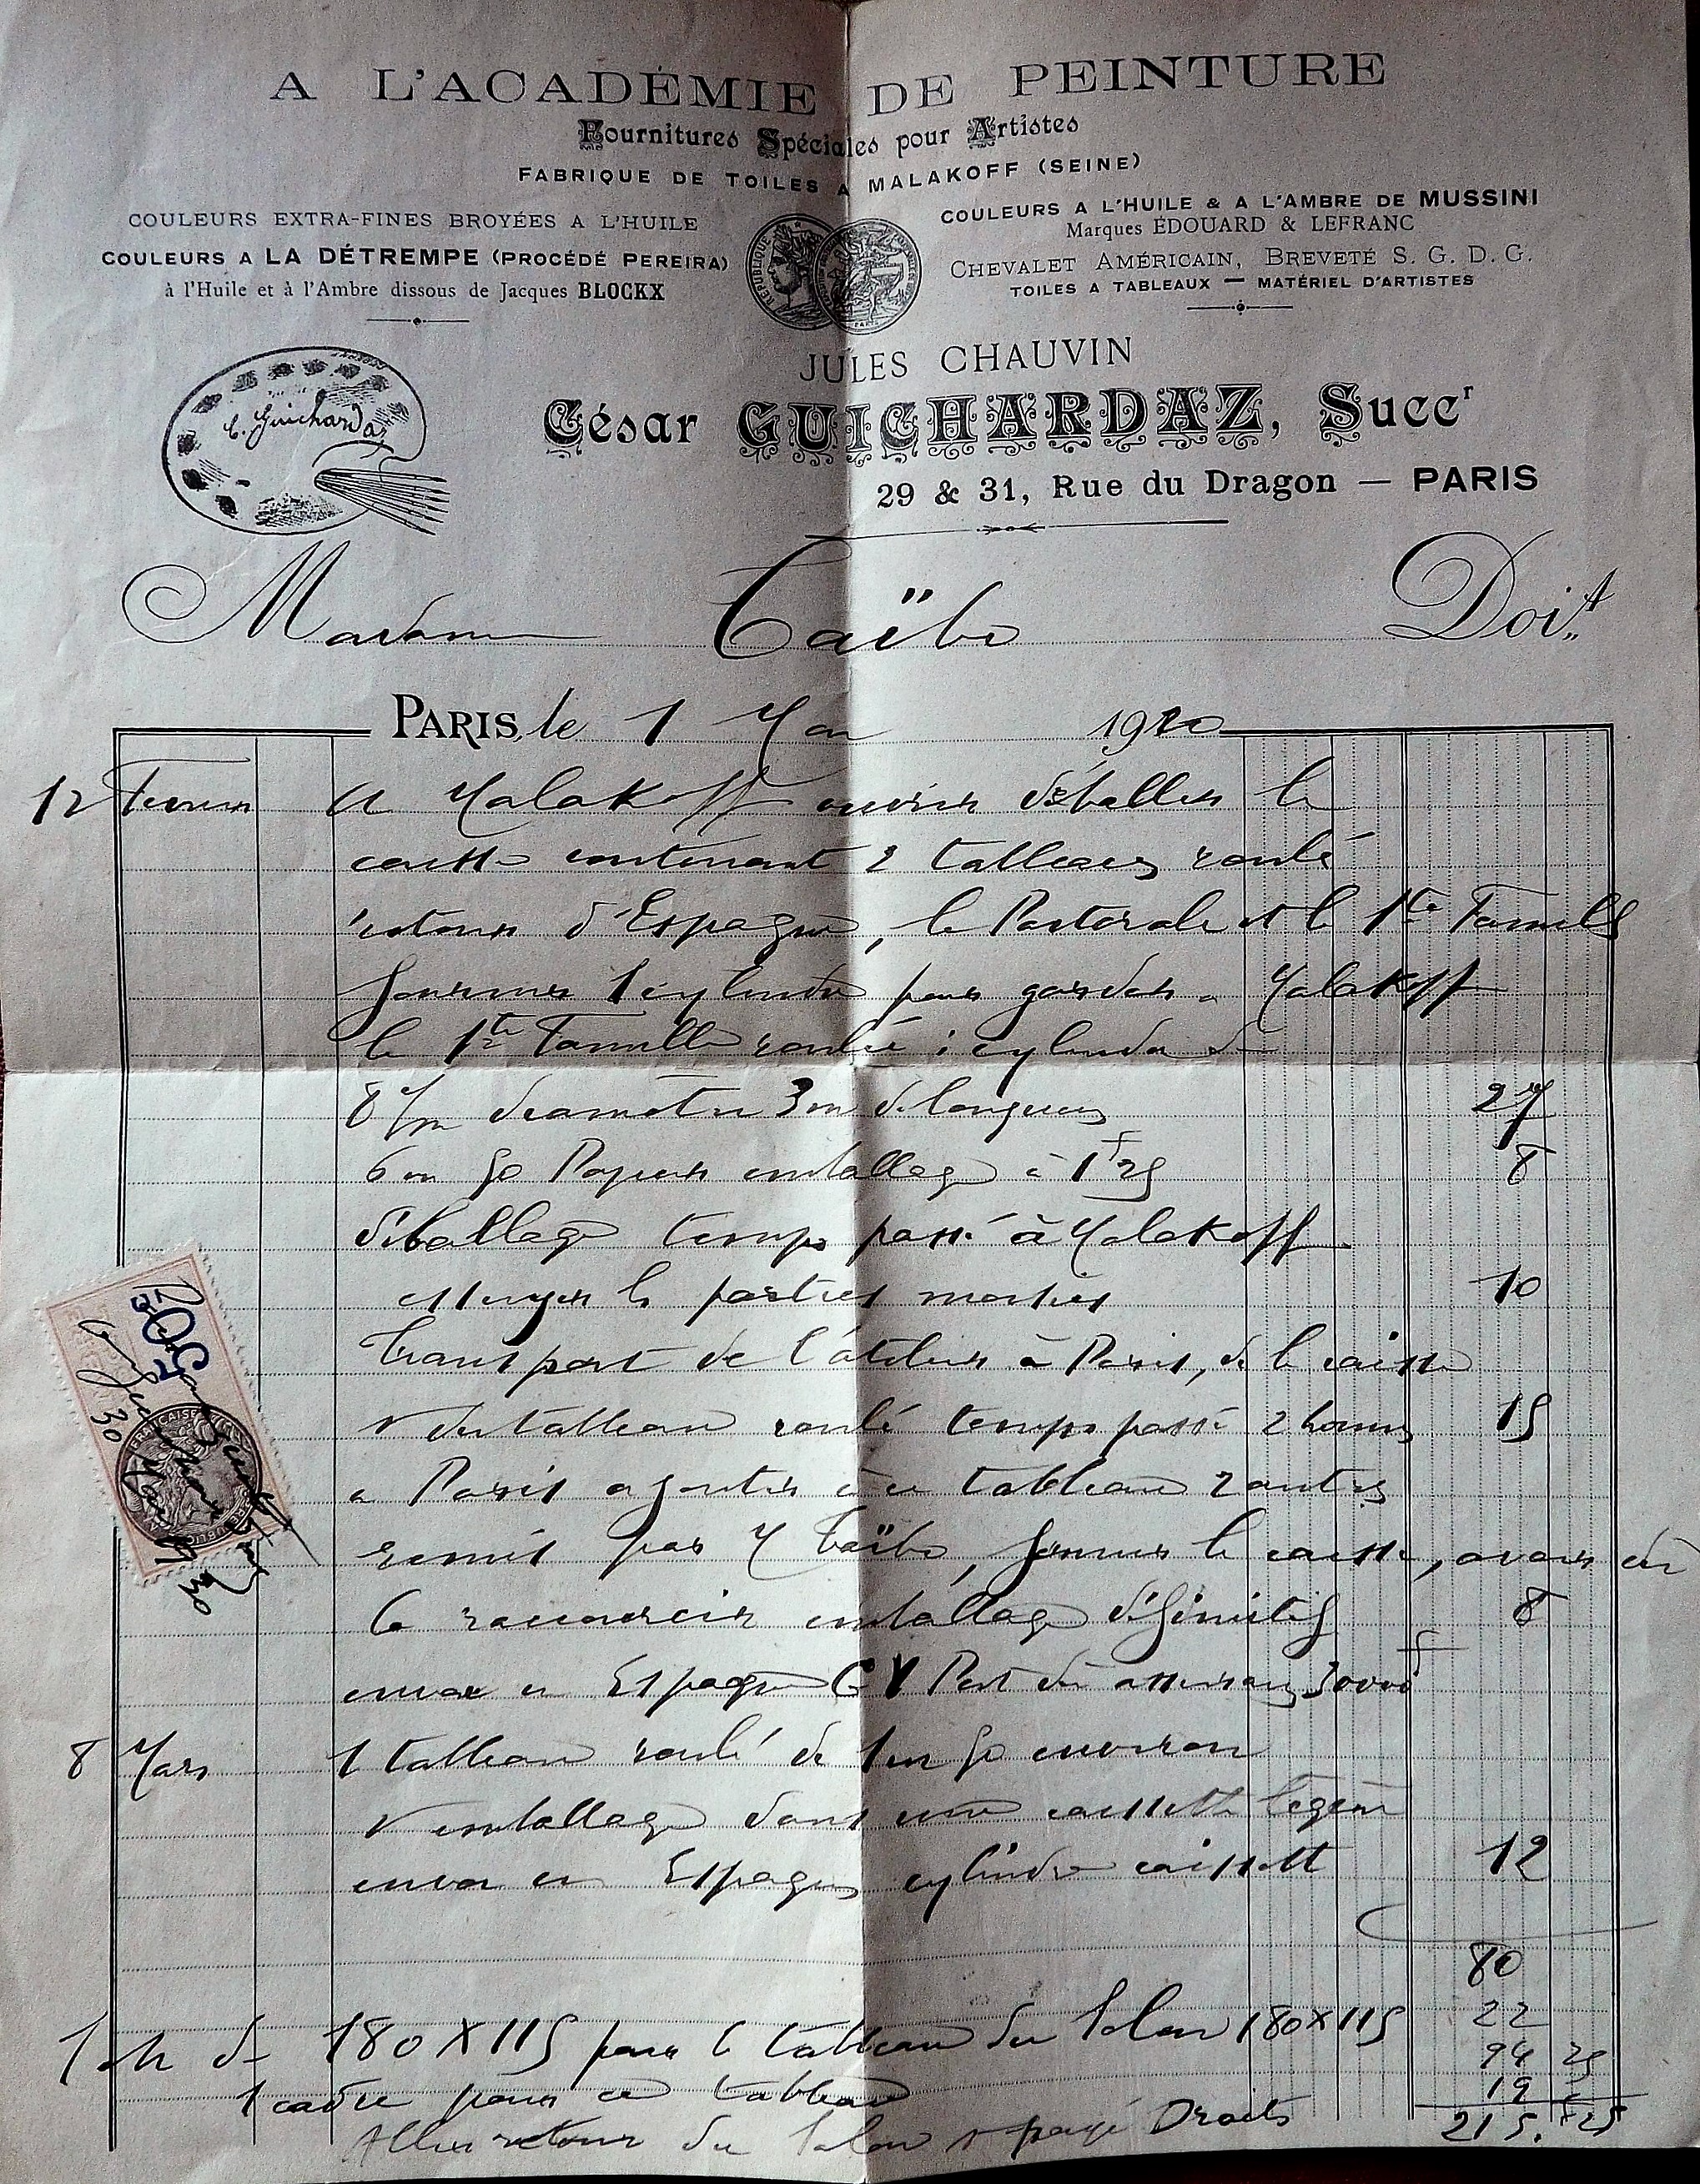 A L'ACADÉMIE DE PEINTURE
Fournitures Spéciales pour Artistes
FABRIQUE DE TOILES A MALAKOFF (SEINE)
COULEURS EXTRA-FINES BROYÉES A L'HUILE
COULEURS A LA DÉTREMPE (PROCÉDÉ PEREIRA)
à l'Huile et à l'Ambre dissous de Jacques BLOCKX
COULEURS A L'HUILE & A L'AMBRE DE MUSSINI
Marques ÉDOUARD & LEFRANC
CHEVALET AMÉRICAIN, BREVETÉ S. G. D. G.
TOILES A TABLEAUX — MATÉRIEL D'ARTISTES
C. Guichardaz
JULES CHAUVIN
César GUICHARDAZ, Succr
29 & 31, Rue du Dragon — PARIS
Madame Taïbo Doit
PARIS, le 1 Mai 1930
12 Fevrier A Malakoff ouvrir déballer la
caisse contenant 2 tableaux roulé
retour d'Espagne, la Pastorale et la 1te Famille
fournir 1 cylindre pour garder a Malakoff
la 1te Famille roulée 1 cylindre de
8 c/m diametre 3m de longueur 27
6m50 Papier emballage à 1f25 8
déballage temps passé à Malakoff
essuyer les parties moisies 10
Transport de l'atelier à Paris, de la caisse
et du tableau roulé temps passé 2 heures 15
a Paris ajouter à ce tableau 2 autres
remis par M Taïbo, fermer la caisse, avoir du
la raccourcir emballage définitif 8
envoi en Espagne GV Port dû assurance 30000f
8 Mars 1 tableau roulé de 1m50 environ
et emballage dans une caissette légère
envoi en Espagne cylindre caissette 12
80
1 ch de 180 X 115 pour le tableau du Salon 180X115 22
1 cadre pour ce tableau 94 25
Aller retour du Salon et payé Droits 19
215.25
50c